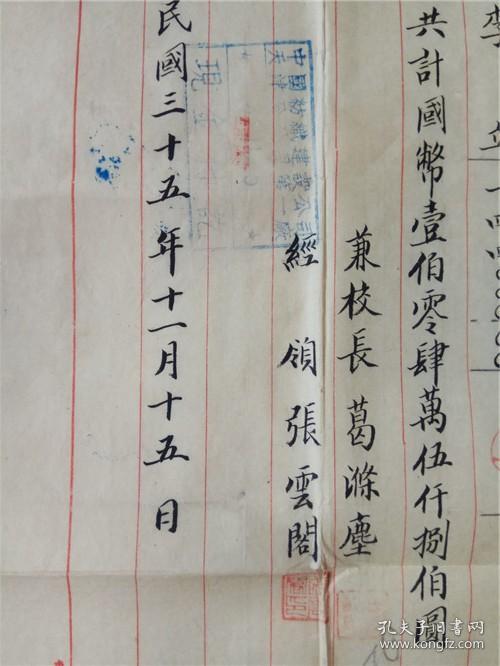 李
共計國幣壹伯零肆萬伍仟捌伯圓
兼校長葛滌塵
經領張雲閣
中國紡織建設公司
天津第一廠
現
民國三十五年十一月十五日
孔夫子旧书网
www.kongfz.com